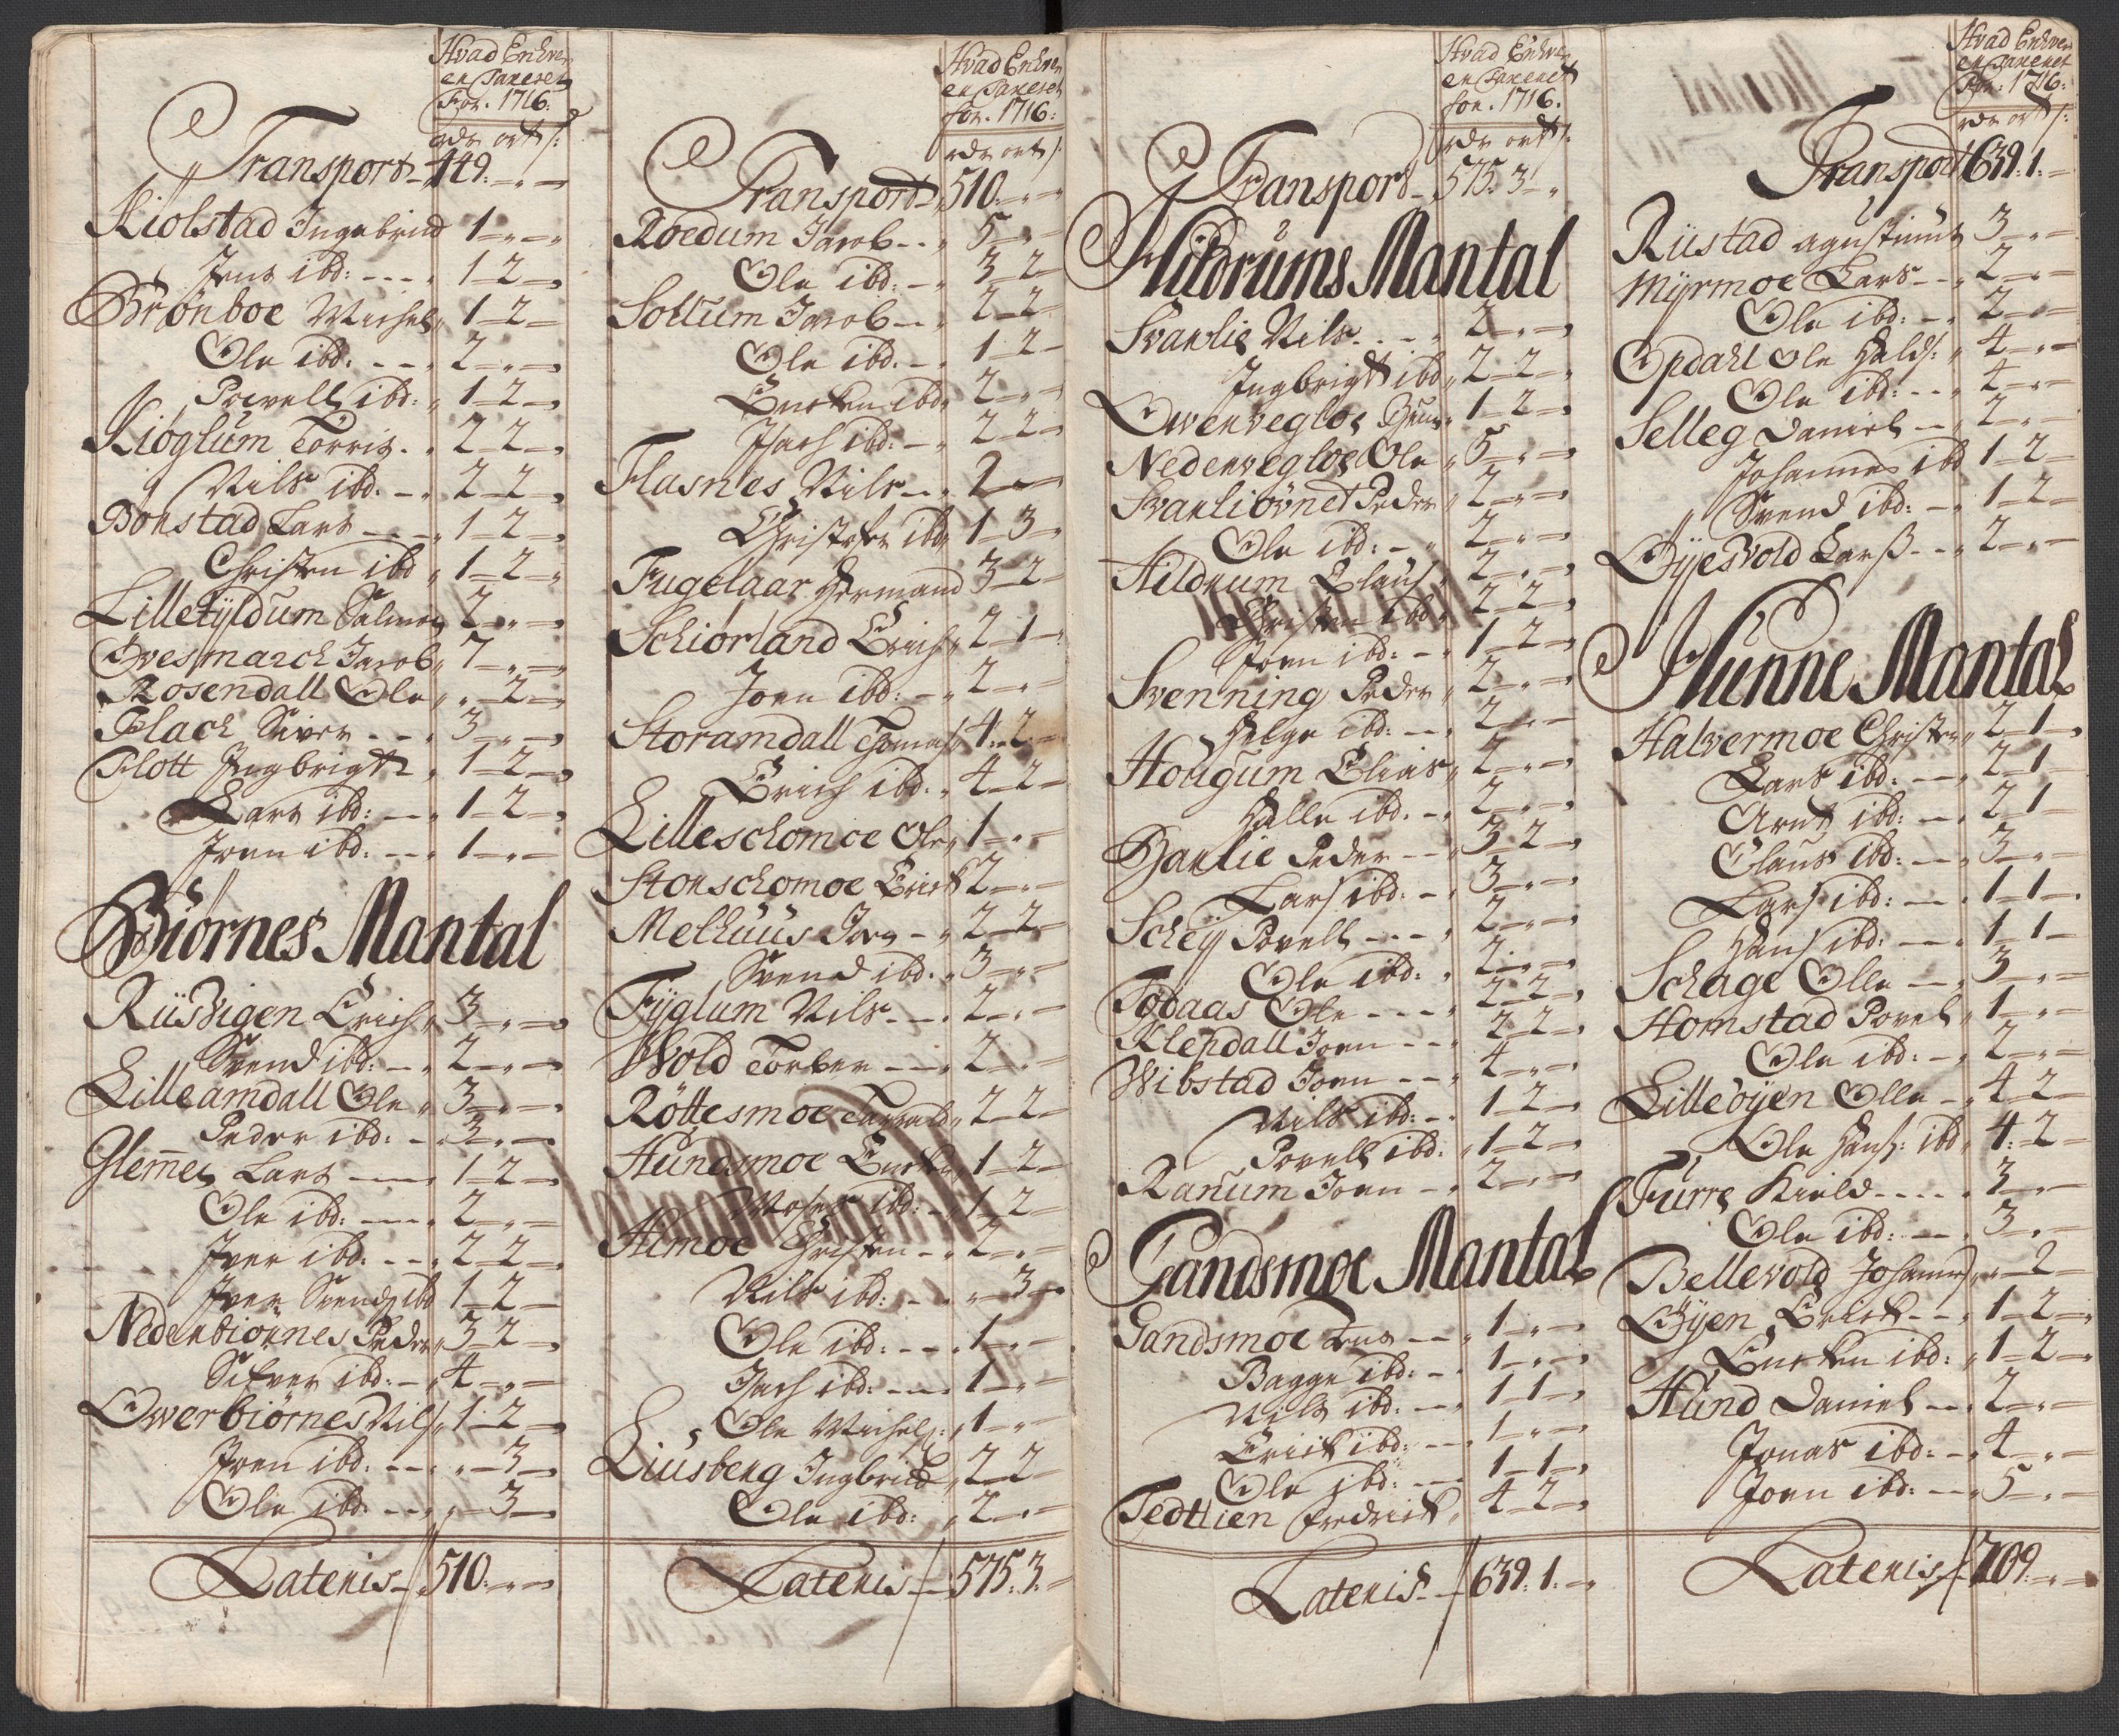 Hvad Enhver
er Taxeret
For. 1716:
rdr ort ß:
Transport 449. „ —
Kiolstad Ingebricd 1 „ „
Jens ibd: 1 2 —
Brønboe Michel 1 2 —
Ole ibd: 2 „ —
Powell ibd: 1 2 —
Kioglum Torris 2 2 —
Nils ibd. 2 2 —
Bonstad Lars 1 2 —
Christen ibd 1 2 —
Lilletyldum Salmon 2 „ —
Øvesmarck Jacob 7 „ —
Rosendall Ole „ 2 —
Flach Siver 3 „ —
Flott Ingbrigt 1 2 —
Lars ibd: 1 2 —
Joen ibd: 1 „ —
Biørnes Mantal
Rüsvigen Erich 3 „ —
Svend ibd: 2 „ —
Lilleamdall Ole 3 „ —
Peder ibd: 3 „ —
Glemes Lars 1 2 —
Ole ibd: 2 „ —
Iver ibd: 2 2 —
Iver Svends ibd 1 2 —
Nederbiørnes Peder 3 2 —
Sifver ibd: 4 „ —
Owerbiørnes Nils 1 2 —
Joen ibd: „ 3 —
Ole ibd: „ 3 —
Lateris 510. „ —
Hvad Enhver
er Taxeret
for. 1716:
rdr ort ß:
Transport 510. „ —
Roedum Jacob 5 „ —
Ole ibd: 3 2 —
Sollum Jacob 2 2 —
Ole ibd: 1 2 —
Encken ibd 2 „ —
Isach ibd: 2 2 —
Flasnes Nils 2 —
Christopher ibd 1 3 —
Fugelaar Hermand 3 2 —
Schiorland Erich 2 1 —
Joen ibd: 2 „ —
Storamdall Tomas 4 2 —
Erich ibd. 4 2 —
Lilleschomoe Ole 1 „ —
Storschomoe Erick 2 „ —
Melhuus Jørg 2 2 —
Svend ibd. 3 „ —
Fyglum Nils 2 „ —
Wold Torber 2 „ —
Röttesmoe Harrald 2 2 —
Hundsmoe Encken 1 2 —
Moses ibd: 1 2 —
Himoe Christen 2 „ —
Nils ibd: „ 3 —
Ole ibd: 1 „ —
Isach ibd: 1 „ —
Ole Michels: 1 „ —
Liusberg Ingbricd 2 2 —
Ole ibd: 2 „ —
Lateris 575. 3. —
Hvad Enhver
er Taxeret
for. 1716.
rdr ort ß.
Transport 575. 3 „
Hildrums Mantal
Svarlie Nils 2 „ —
Ingbrigt ibd 2 2 „
Owervegloe Gun 1 2 —
Nedervegloe Ole 5 „ —
Svarliøvnet Peder 2 „ —
Ole ibd: 2 „ —
Hildrum Claus 2 „ —
Christen ibd 2 2 —
Joen ibd: 1 2 —
Svenning Peder 2 „ —
Helge ibd: 2 „ —
Hougum Elias 2 „ —
Halle ibd. 2 „ —
Harlie Peder 3 2 —
Lars ibd: 3 „ —
Schey Powell 2 „ —
Ole ibd: 2 „ —
Tødaas Ole 2 2 —
Klepdall Joen 2 2 —
Wibstad Joen 4 „ —
Nils ibd: 1 2 —
Powell ibd: 1 2 —
Ranum Joen 2 „ —
Gandsmoe Mantal
Gandsmoe Jens 1 „ —
Bagge ibd: 1 „ —
Nils ibd: 1 1 —
Erick ibd: 1 „ —
Ole ibd: 1 1 —
Tedttien Fredrick 4 2 —
Lateris 639. 1. —
Hvad Enhver
er Taxeret
For. 1716:
rdr ort ß:
Transport 639. 1. —
Rüstad agustinus 3 „ —
Myrmoe Lars 2 „ —
Ole ibd: 2 „ —
Opdahl Ole Halds: 4 „ —
Ole ibd: 4 „ —
Selleg Daniel 2 „ —
Johannes ibd 1 2 —
Svend ibd: 1 2 —
Øyesvold Larß 2 „ —
Hunne Mantal
Halvermoe Christen 2 1 —
Lars ibd: 2 1 —
Arnt ibd: 2 1 —
Claus ibd: 3 „ —
Lars ibd: 1 1 —
Hans ibd: 1 1 —
Schage Olle 3 „ —
Homstad Povel 1 „ —
Ole ibd: 2 „ —
Lilleøyen Olle 4 2 —
Ole Hans: ibd 4 2 —
Furre Kield 3 „ —
Ole ibd: 3 „ —
Bellevold Johannes „ 2 —
Øyen Erick 1 2 —
Encken ibd: 1 2 —
Hund Daniel 2 „ —
Jonas ibd: 4 „ —
Joen ibd: 5 „ —
Lateris 709. „ —